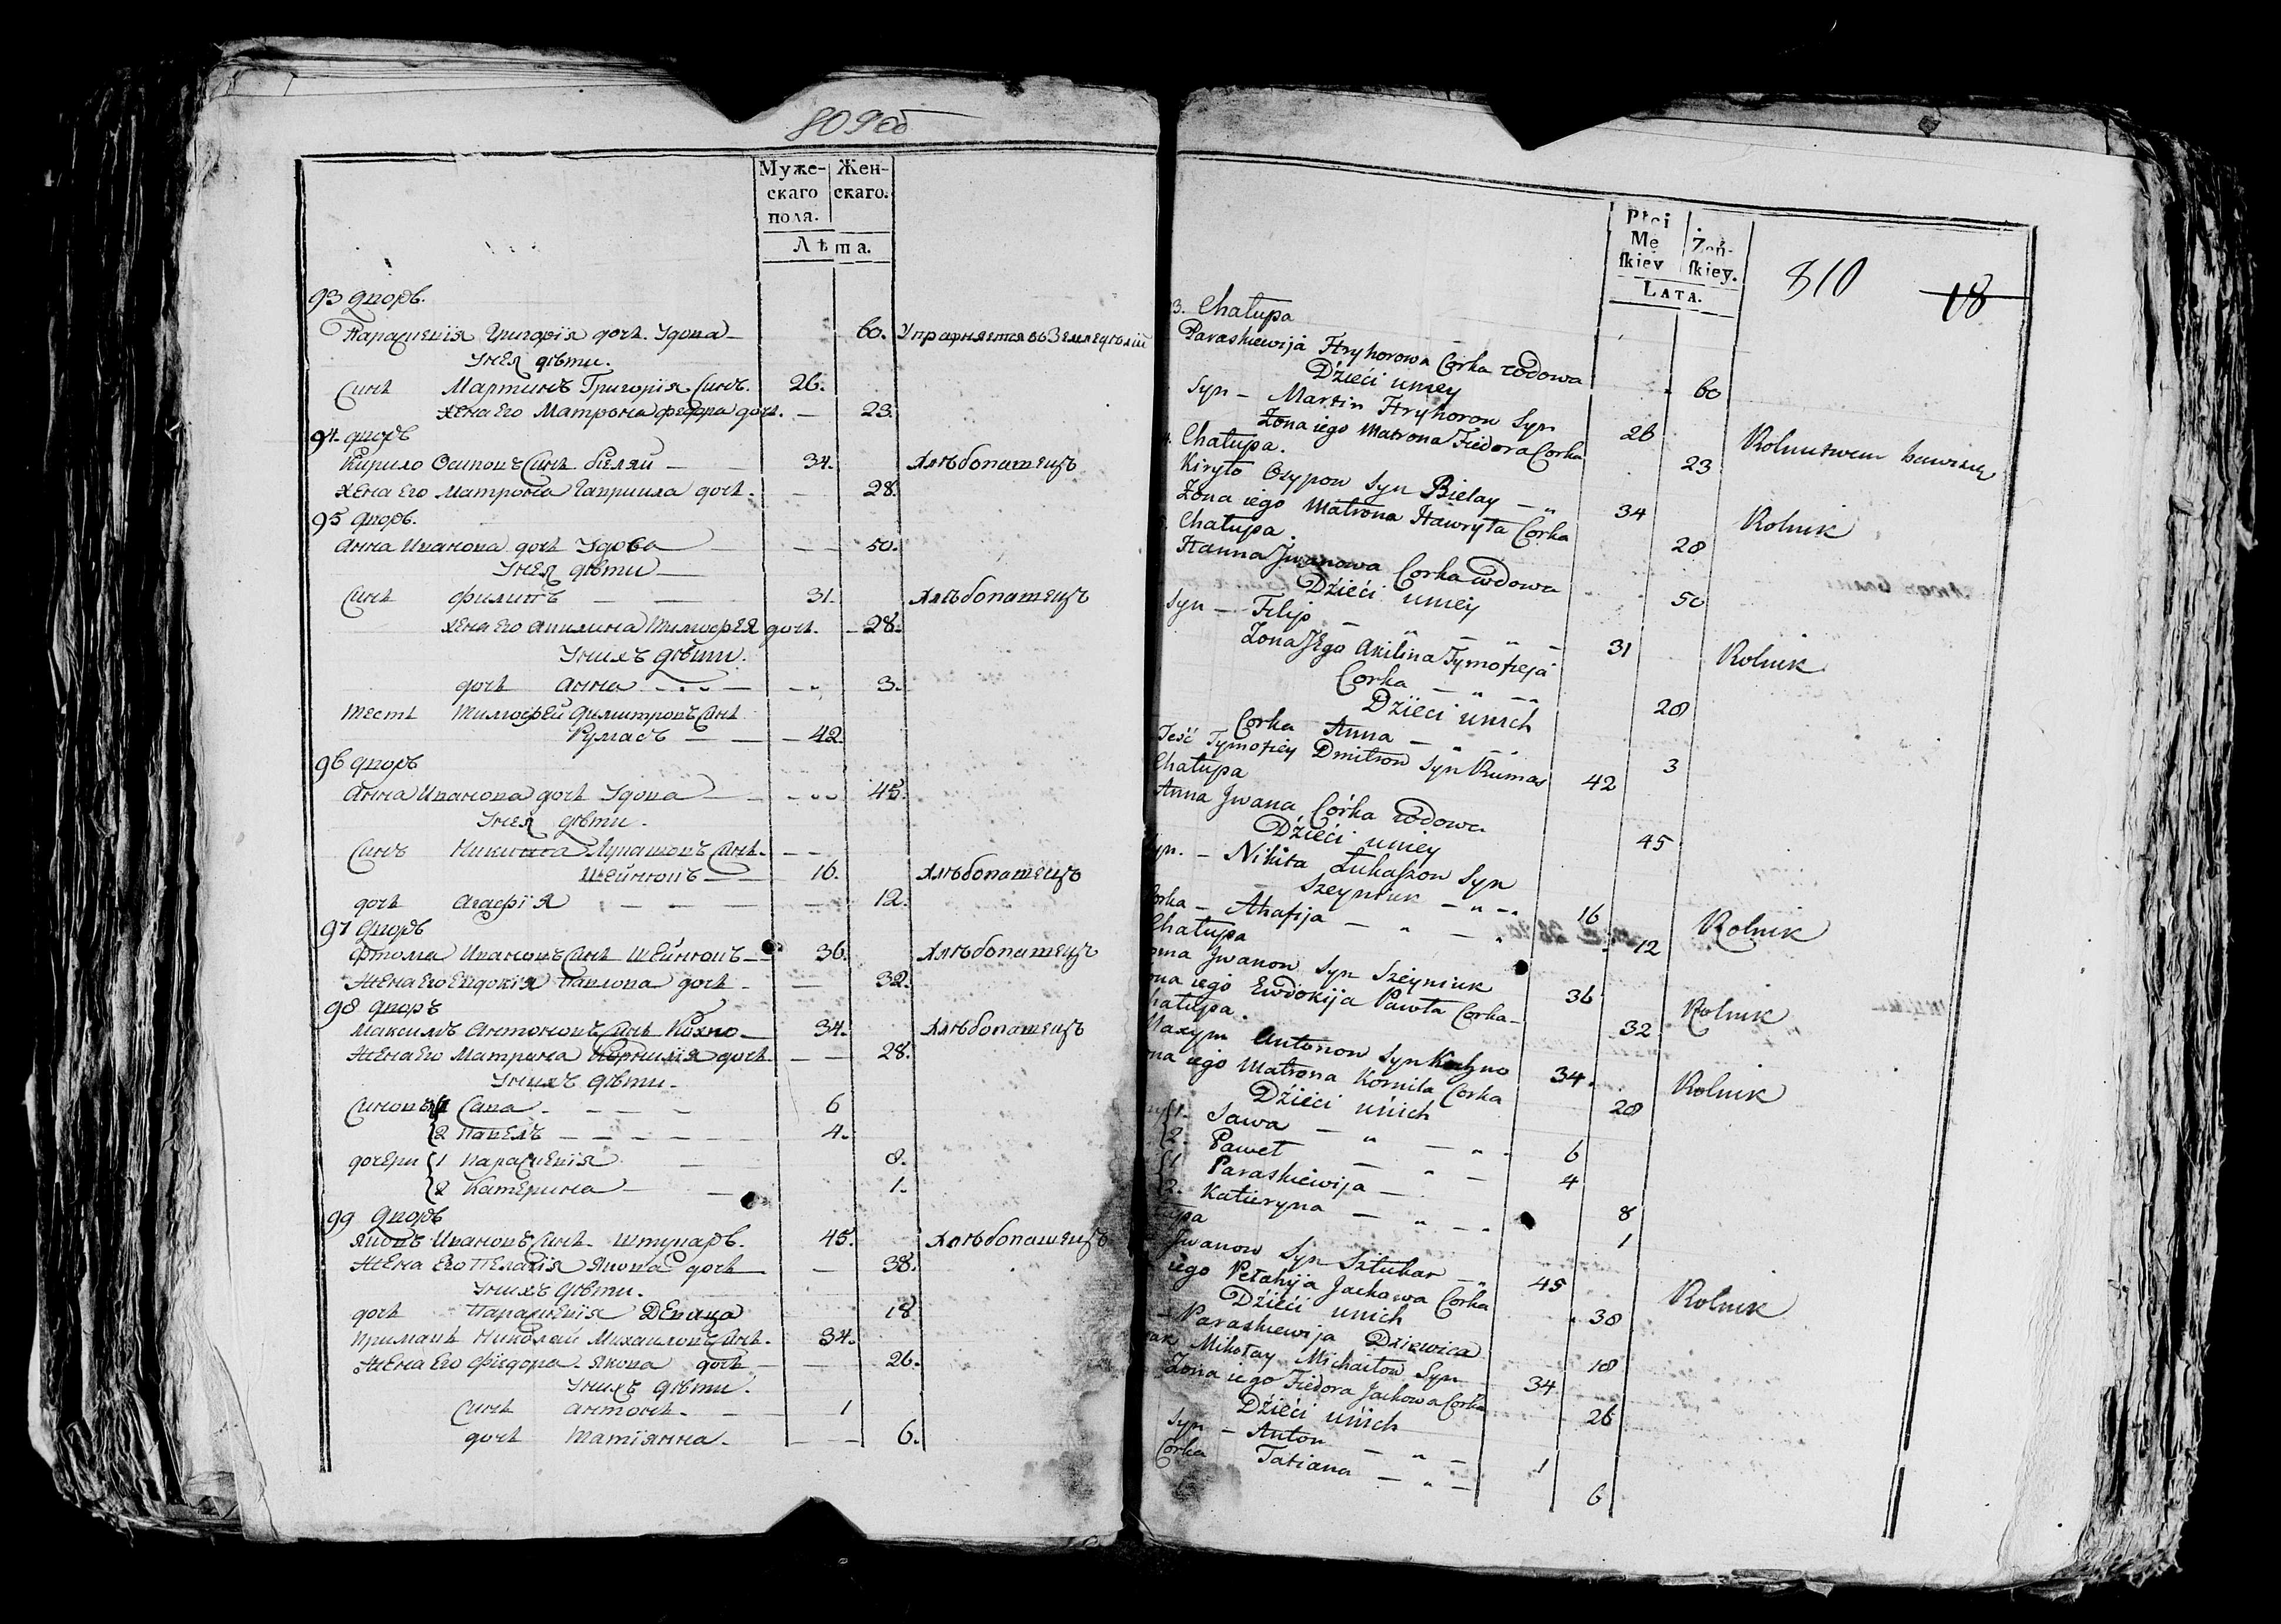 809 об
Муже-
скаго
пола.
Жен-
скаго.
Лѣта.
93 дворъ.
Параскевія Григорія дочь Удова — 60. Упражняется въ Земледѣліи
Унея дѣти.
Синъ Мартинъ Григорія Синъ. 26.
жена Его Матрона Федора дочь. — 23.
94 дворъ
Кирило Осиповъ Синъ бѣлай — 34. Хлѣбопашецъ
жена Его Матрона Гавриила дочь. — 28.
95 дворъ.
Анна Иванова дочь Удова — 50.
Унея дѣти —
Синъ Филипъ — — 31. Хлѣбопашецъ
жена Его Акилина Тимофея дочь. — 28.
Унихъ дѣти.
дочь Анна — — 3.
тесть Тимофей Димитровъ Синъ
Румасъ — — 42.
96 дворъ
Анна Иванова дочь Удова — 45.
Унея дѣти.
Синъ Никита Лукашовъ Синъ. — —
Шейнюкъ — 16. Хлѣбопашецъ
дочь Агафія — — — 12.
97 дворъ
Фтома Ивановъ Синъ Шейнюкъ — 36. Хлѣбопашецъ
Жена Его Евдокія Павлова дочь — 32.
98 дворъ
Максимъ Антоновъ Синъ Кохно — 34. Хлѣбопашецъ
Жена Его Матрона Корнилія дочь — — 28.
Унихъ дѣти.
Синовъя 1 Сава — — — 6
2 Павелъ — — — — 4.
дочери 1 Параскевія — 8.
2 Катерина — — 1.
99 дворъ
Яковъ Ивановъ Синъ. штукаръ. 45. Хлѣбопашецъ
Жена Его Пелагія Якова дочь — 38.
Унихъ дѣти.
дочь Параскевія Девица 18
Примакъ Николай Михаиловъ Синъ. 34.
Жена Его Фіедора Якова дочь — 26.
Унихъ дѣти.
Синъ Антонъ. — 1
дочь Татіянна. — — 6.
Płci
Mę
skiey
Żeń-
skiey.
Lata.
810
18
3. Chałupa
Paraskiewija Hryhorowa Corka wdowa 60 Rolnictwem bawiący
Dzieci uniey
Syn — Martin Hryhorow Syn 26
Żona iego Matrona Fiedora Corka 23
Chałupa.
Kiryło Osypow Syn Bielay — „ 34 Rolnik
Żona iego Matrona Hawryła Corka 28
Chałupa.
Hanna Jwanowa Corka wdowa 50
Dzieci uniey
Syn — Filip — „ — „ — 31 Rolnik
Żona Jego Akilina Tymofieja
Corka — „ — 28
Dzieci unich
Corka Anna — „ — 3
Teść Tymofiey Dmitrow Syn Rumas 42
Chałupa
Anna Jwana Córka wdowa 45
Dzieci uniey
Syn. — Nikita Łukaszow Syn
Szeyniuk — „ — 16 Rolnik
Corka — Ahafija — „ — „ 12
Chałupa
oma Jwanow Syn Szeyniuk 36 Rolnik
ona iego Ewdokija Pawła Corka — 32
hałupa.
Maxym Antonow Syn Kochno 34. Rolnik
ona iego Matrona Korniła Corka 28
Dzieci unich
1. Sawa — „ — „ — 6
2. Paweł — „ — 4
1 Paraskiewija — 8
2. Katieryna — „ — „ 1
łupa
Jwanow Syn Sztukar — „ 45 Rolnik
iego Pełahija Jachowa Corka 38
Dzieci unich
— Paraskiewija Dziewica 18
ak Mikołay Michaiłow Syn 34
Żona iego Fiedora Jachowa Corka 26
Dzieci unich
Syn — Anton — „ — 1
Corka Tatiana — „ — 6